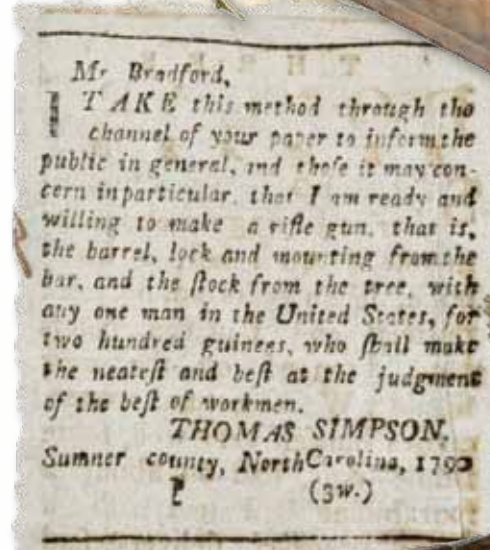 Mr Bradford,
I TAKE this method through the
channel of your paper to inform the
public in general, and thoſe it may con-
cern in particular, that I am ready and
willing to make a rifle gun, that is,
the barrel, lock and mounting from the
bar, and the ſtock from the tree, with
any one man in the United States, for
two hundred guineas, who ſhall make
the neateſt and beſt at the judgment
of the beſt of workmen.
THOMAS SIMPSON.
Sumner county, North Carolina, 1790
(3w.)